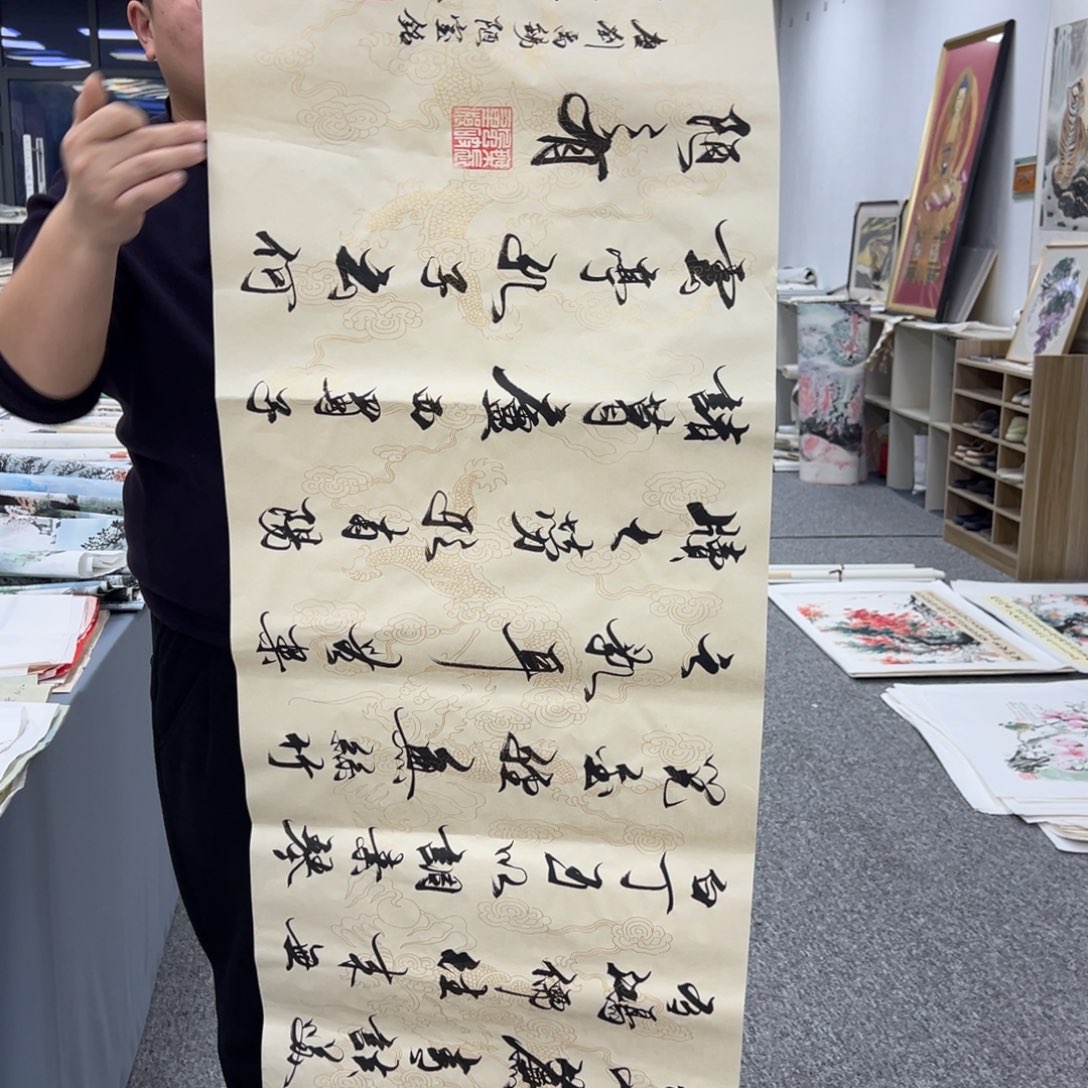 簾青談笑
有鴻儒往來無
白丁可以調素琴
閱金經無絲竹
之亂耳無案
牘之勞形南陽
諸葛廬西蜀子
雲亭孔子云何
陋之有
唐劉禹錫陋室銘